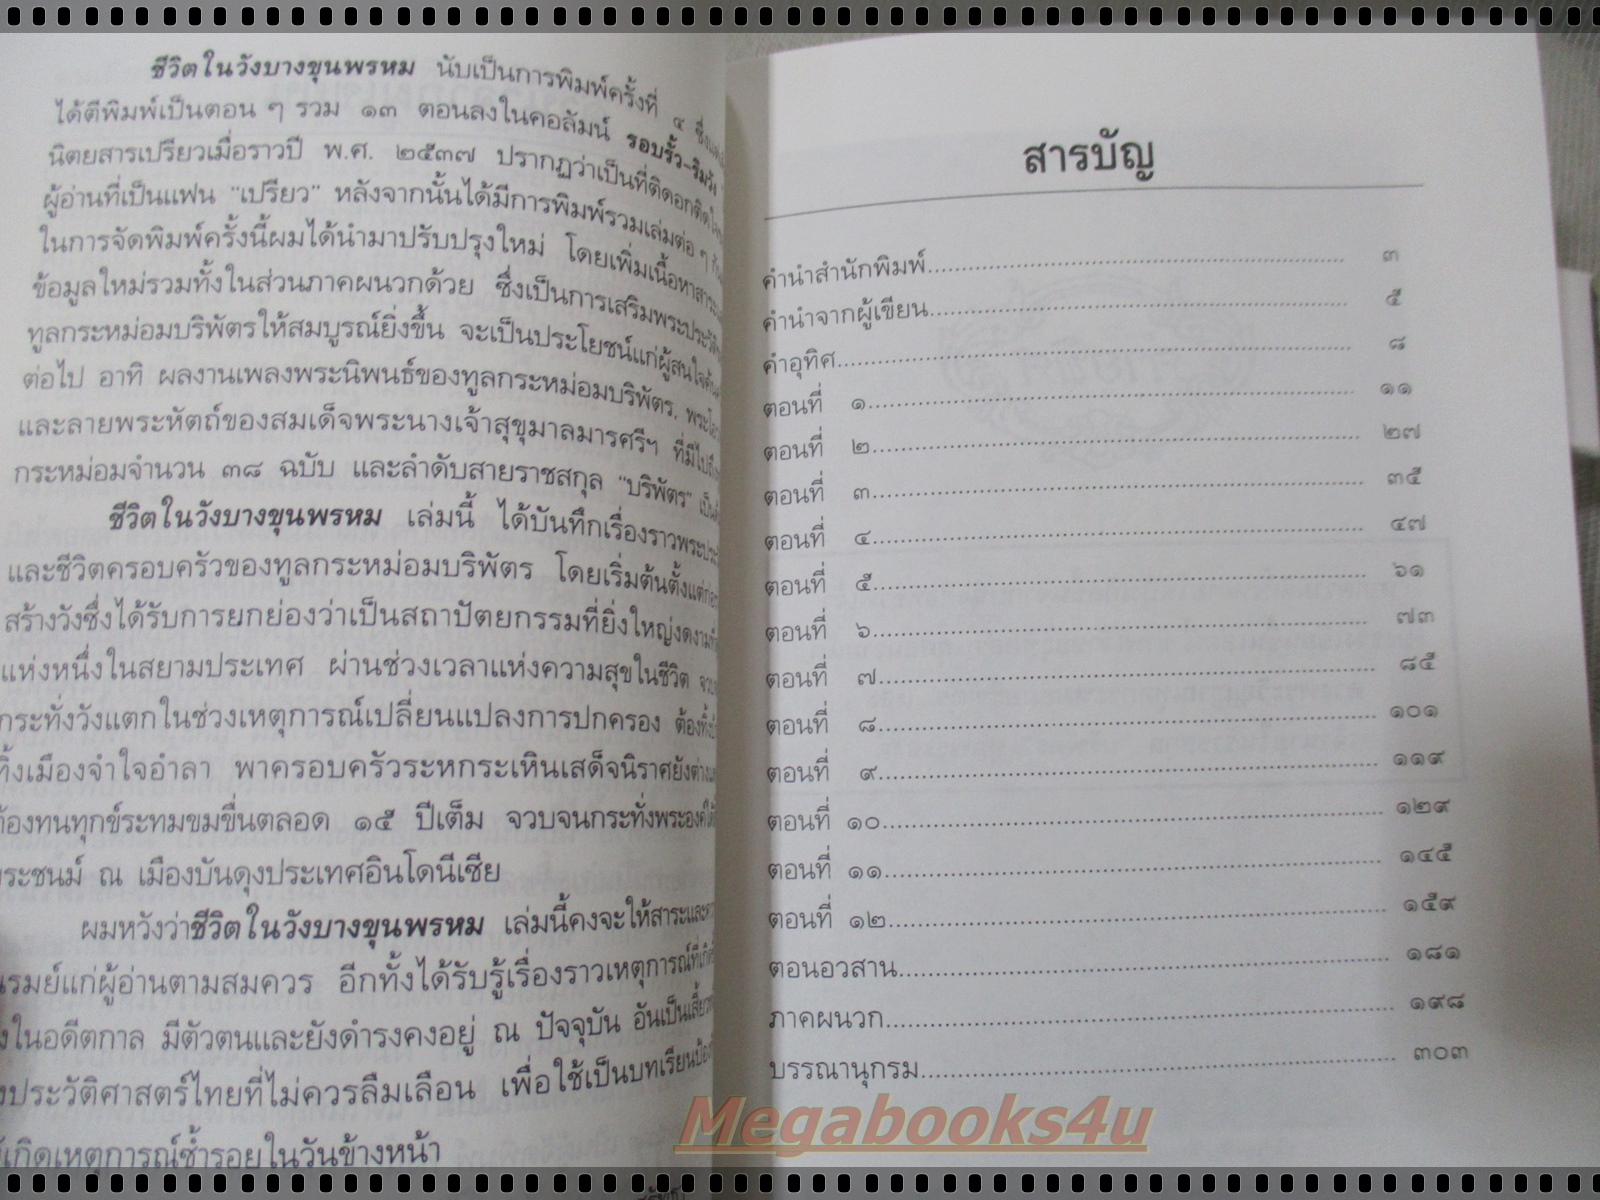 ชีวิตในวังบางขุนพรหม นับเป็นการพิมพ์ครั้งที่ ๔
ได้ตีพิมพ์เป็นตอน ๆ รวม ๑๓ ตอนลงในคอลัมน์ รอบรั้ว-ริมวัง
นิตยสารเปรียวเมื่อราวปี พ.ศ. ๒๕๓๗ ปรากฏว่าเป็นที่ติดอกติดใจ
ผู้อ่านที่เป็นแฟน "เปรียว" หลังจากนั้นได้มีการพิมพ์รวมเล่มต่อ ๆ
ในการจัดพิมพ์ครั้งนี้ผมได้นำมาปรับปรุงใหม่ โดยเพิ่มเนื้อหาสาระ
ข้อมูลใหม่รวมทั้งในส่วนภาคผนวกด้วย ซึ่งเป็นการเสริมพระประวัติ
ทูลกระหม่อมบริพัตรให้สมบูรณ์ยิ่งขึ้น จะเป็นประโยชน์แก่ผู้สนใจ
ต่อไป อาทิ ผลงานเพลงพระนิพนธ์ของทูลกระหม่อมบริพัตร,
และลายพระหัตถ์ของสมเด็จพระนางเจ้าสุขุมาลมารศรีฯ ที่มีไปถึง
กระหม่อมจำนวน ๓๘ ฉบับ และลำดับสายราชสกุล "บริพัตร"
ชีวิตในวังบางขุนพรหม เล่มนี้ ได้บันทึกเรื่องราวพระประ
และชีวิตครอบครัวของทูลกระหม่อมบริพัตร โดยเริ่มต้นตั้งแต่ก่อน
สร้างวังซึ่งได้รับการยกย่องว่าเป็นสถาปัตยกรรมที่ยิ่งใหญ่งดงาม
แห่งหนึ่งในสยามประเทศ ผ่านช่วงเวลาแห่งความสุขในชีวิต
กระทั่งวังแตกในช่วงเหตุการณ์เปลี่ยนแปลงการปกครอง ต้องทิ้ง
ทิ้งเมืองจำใจอำลา พาครอบครัวระหกระเหินเสด็จนิราศยังต่าง
ต้องทนทุกข์ระทมขมขื่นตลอด ๑๕ ปีเต็ม จวบจนกระทั่งพระองค์ได้
พระชนม์ ณ เมืองบันดุงประเทศอินโดนีเซีย
ผมหวังว่าชีวิตในวังบางขุนพรหม เล่มนี้คงจะให้สาระและ
รมย์แก่ผู้อ่านตามสมควร อีกทั้งได้รับรู้เรื่องราวเหตุการณ์ที่เกิด
ในอดีตกาล มีตัวตนและยังดำรงคงอยู่ ณ ปัจจุบัน อันเป็นเสี้ยว
ประวัติศาสตร์ไทยที่ไม่ควรลืมเลือน เพื่อใช้เป็นบทเรียนป้อง
เกิดเหตุการณ์ซ้ำรอยในวันข้างหน้า
สารบัญ
คำนำสำนักพิมพ์ ๓
คำนำจากผู้เขียน ๕
คำอุทิศ ๘
ตอนที่ ๑ ๑๑
ตอนที่ ๒ ๒๗
ตอนที่ ๓ ๓๕
ตอนที่ ๔ ๔๗
ตอนที่ ๕ ๖๑
ตอนที่ ๖ ๗๓
ตอนที่ ๗ ๘๕
ตอนที่ ๘ ๑๐๑
ตอนที่ ๙ ๑๑๙
ตอนที่ ๑๐ ๑๒๙
ตอนที่ ๑๑ ๑๔๕
ตอนที่ ๑๒ ๑๕๙
ตอนอวสาน ๑๘๑
ภาคผนวก ๑๙๘
บรรณานุกรม ๓๐๓
Megabooks4u